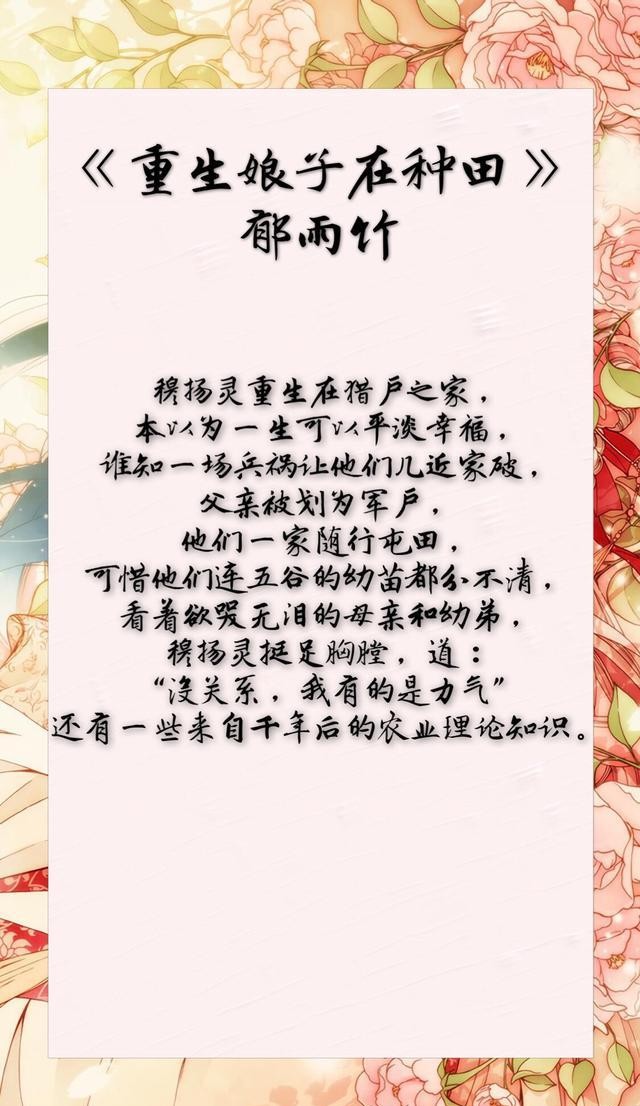 《重生娘子在种田》
郁雨竹
穆扬灵重生在猎户之家，
本以为一生可以平淡幸福，
谁知一场兵祸让他们几近家破，
父亲被划为军户，
他们一家随行屯田，
可惜他们连五谷的幼苗都分不清，
看着欲哭无泪的母亲和幼弟，
穆扬灵挺足胸膛，道：
“没关系，我有的是力气”
还有一些来自千年后的农业理论知识。